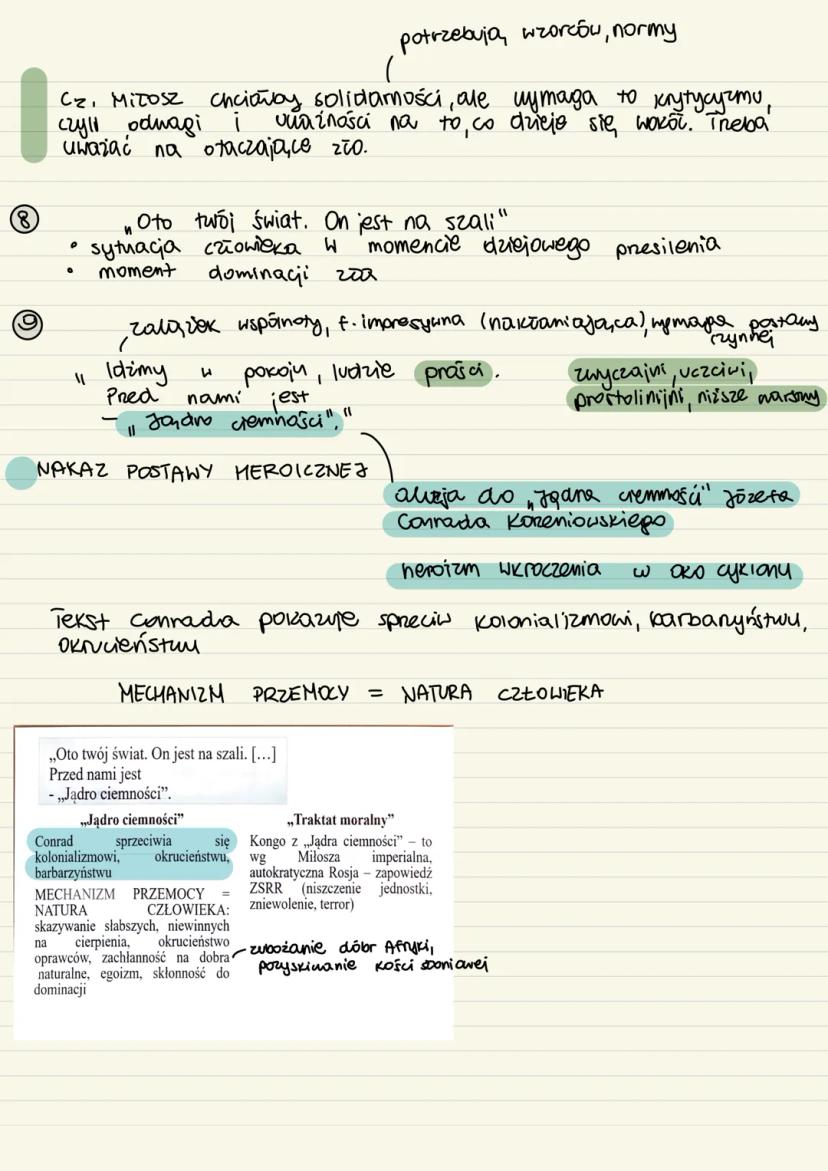 potrzebują wzorców, normy
Cz. Miłosz chciałby solidarności, ale wymaga to krytycyzmu,
czyli odwagi i uważności na to, co dzieje się wokół. Trzeba
uważać na otaczające zło.
8 „Oto twój świat. On jest na szali"
• sytuacja człowieka w momencie dziejowego przesilenia
• moment dominacji zła
9 zalążek wspólnoty, f. impresywna (nakłaniająca), wymaga postawy
czynnej
„Idźmy w pokoju, ludzie prości. zwyczajni, uczciwi,
Przed nami jest prostolinijni, niższe warstwy
– „Jądro ciemności"."
NAKAZ POSTAWY HEROICZNEJ
aluzja do „Jądra ciemności" Józefa
Conrada Korzeniowskiego
heroizm wkroczenia w oko cyklonu
Tekst Conrada pokazuje sprzeciw kolonializmowi, barbarzyństwu,
okrucieństwu
MECHANIZM PRZEMOCY = NATURA CZŁOWIEKA
„Oto twój świat. On jest na szali. […]
Przed nami jest
- „Jądro ciemności”.
„Jądro ciemności”
Conrad sprzeciwia się
kolonializmowi, okrucieństwu,
barbarzyństwu
MECHANIZM PRZEMOCY =
NATURA CZŁOWIEKA:
skazywanie słabszych, niewinnych
na cierpienia, okrucieństwo
oprawców, zachłanność na dobra
naturalne, egoizm, skłonność do
dominacji
„Traktat moralny”
Kongo z „Jądra ciemności” – to
wg Miłosza imperialna,
autokratyczna Rosja – zapowiedź
ZSRR (niszczenie jednostki,
zniewolenie, terror)
zubożanie dóbr Afryki,
pozyskiwanie kości słoniowej